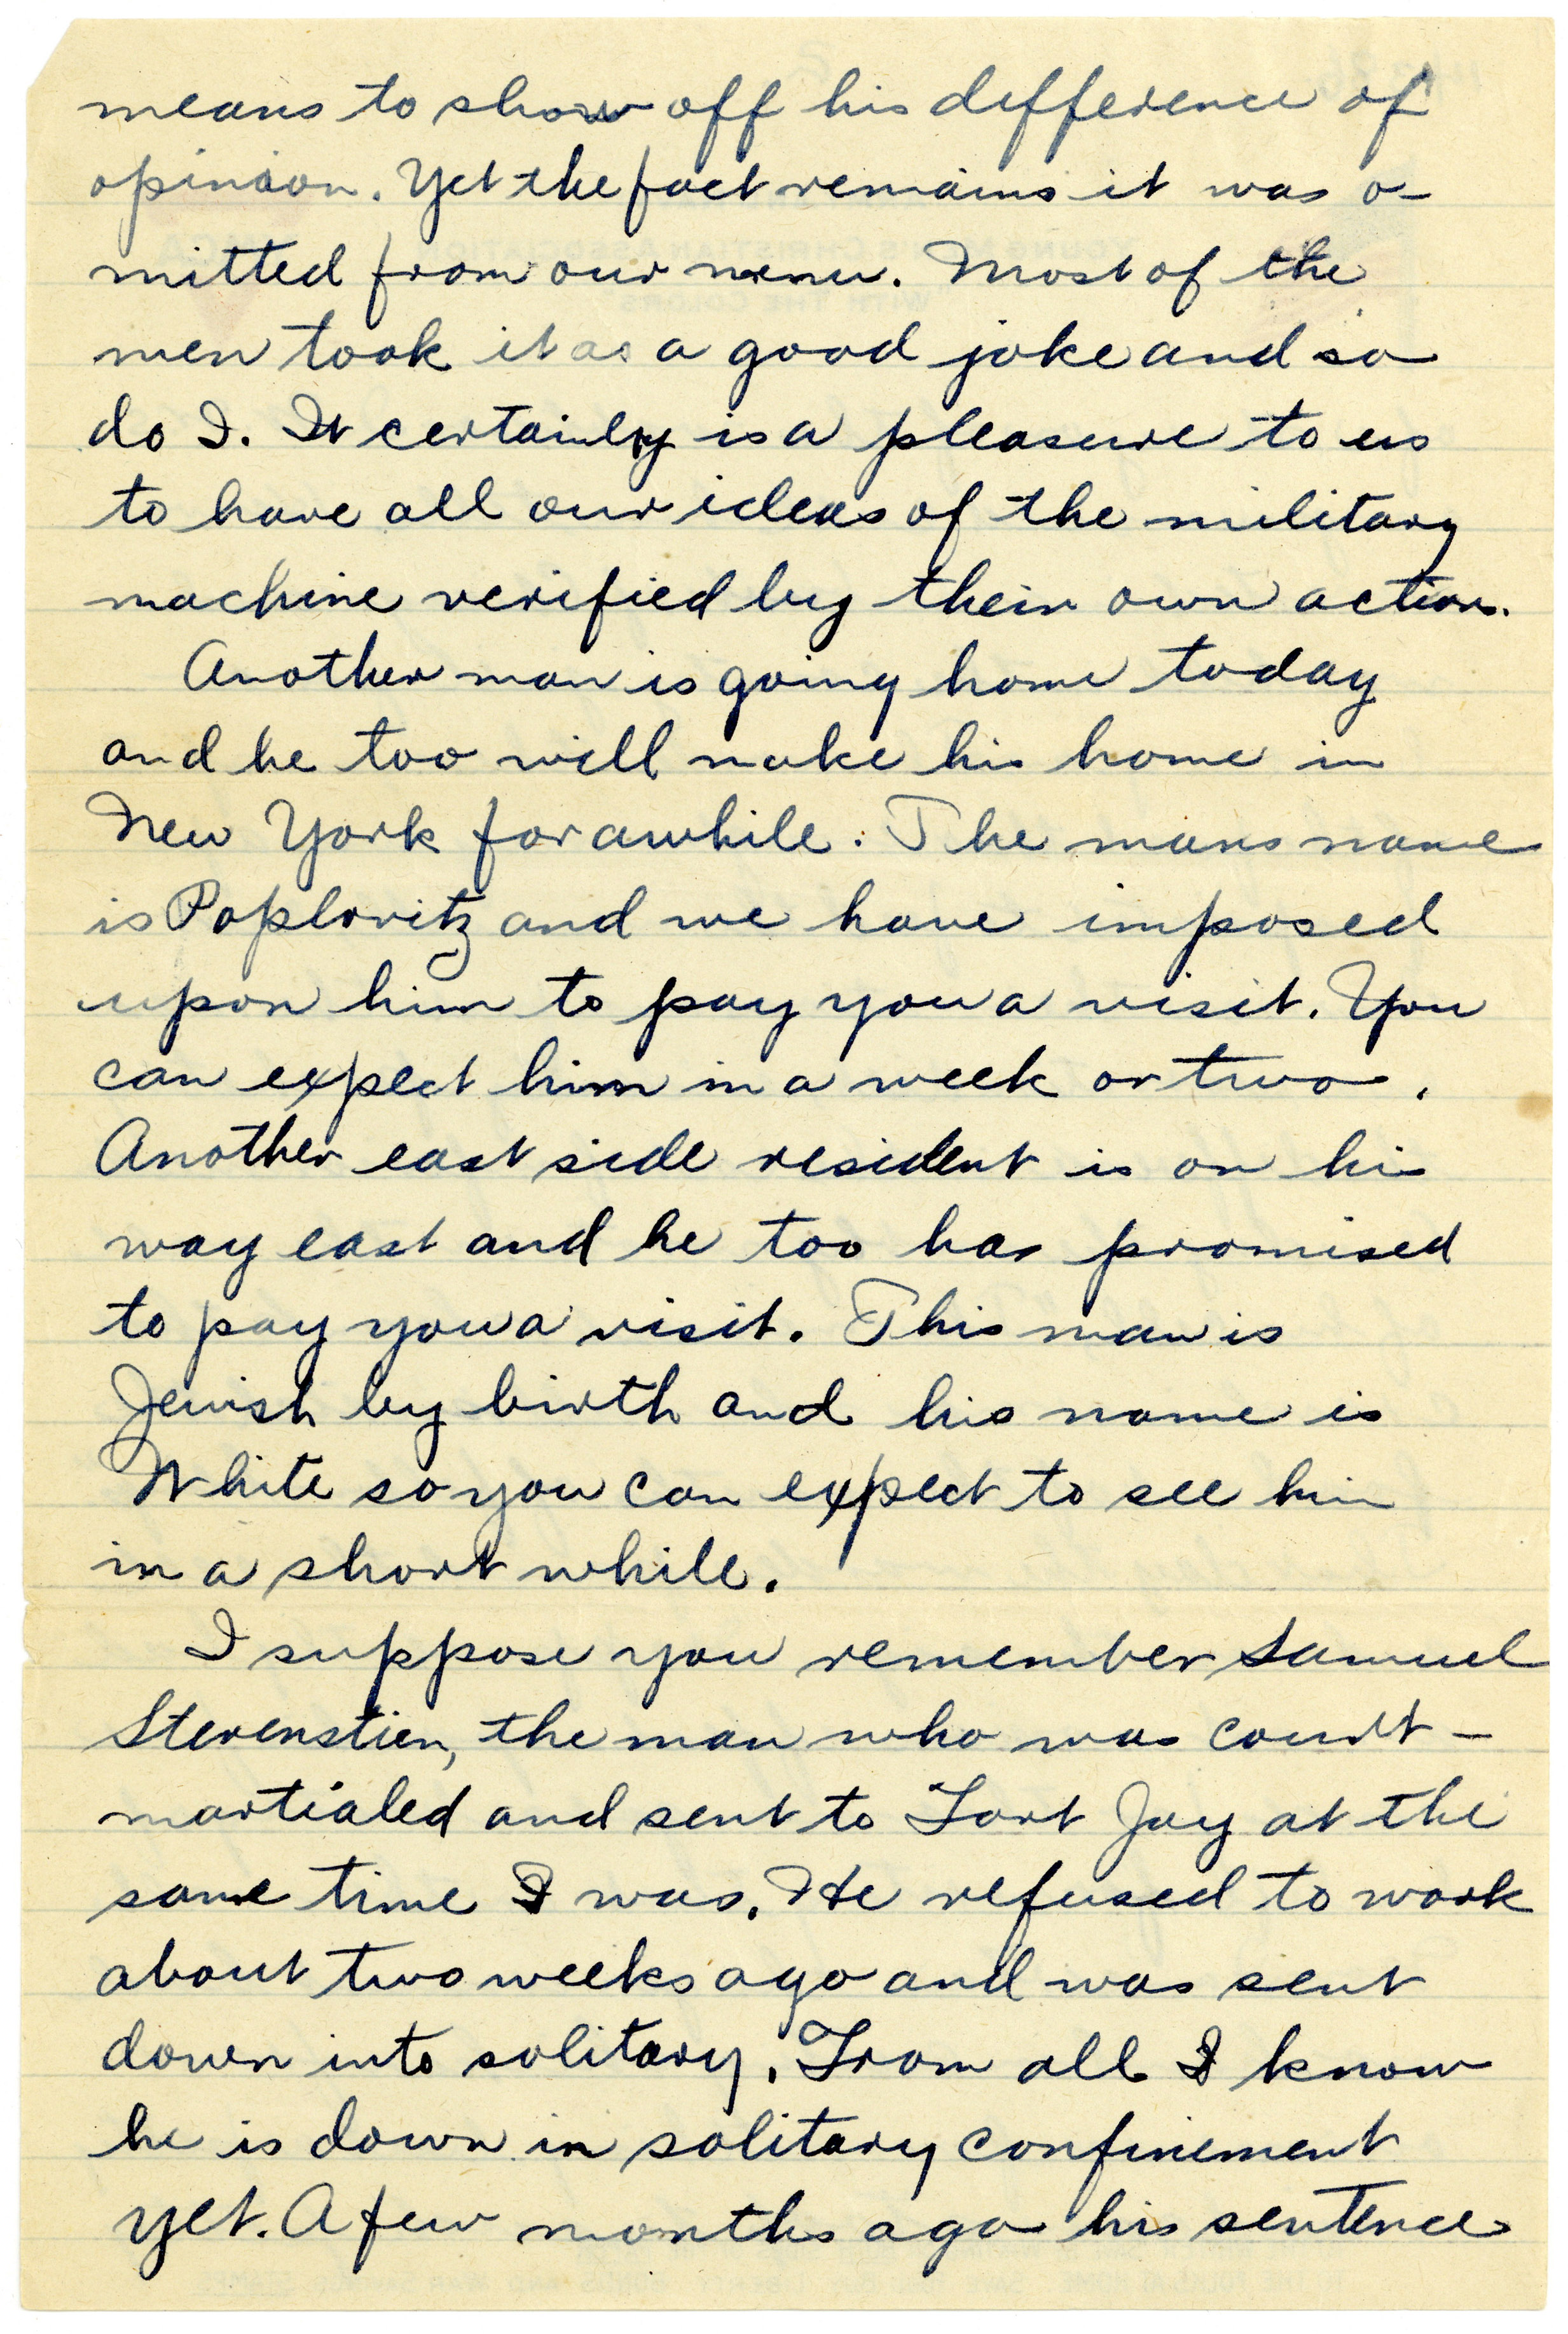 means to show off his defference of
opinion. Yet the fact remains it was o-
mitted from our menu. Most of the
men took it as a good joke and so
do I. It certainly is a pleasure to us
to have all our ideas of the military
machine verified by their own action.
Another man is going home today
and he too will make his home in
New York for awhile. The mans name
is Poplovitz and we have imposed
upon him to pay you a visit. You
can expect him in a week or two.
Another east side resident is on his
way east and he too has promised
to pay you a visit. This man is
Jewish by birth and his name is
White so you can expect to see him
in a short while.
I suppose you remember Samuel
Sterenstien, the man who was court-
martialed and sent to Fort Jay at the
same time I was. He refused to work
about two weeks ago and was sent
down into solitary. From all I know
he is down in solitary confinement
yet. A few months ago his sentence